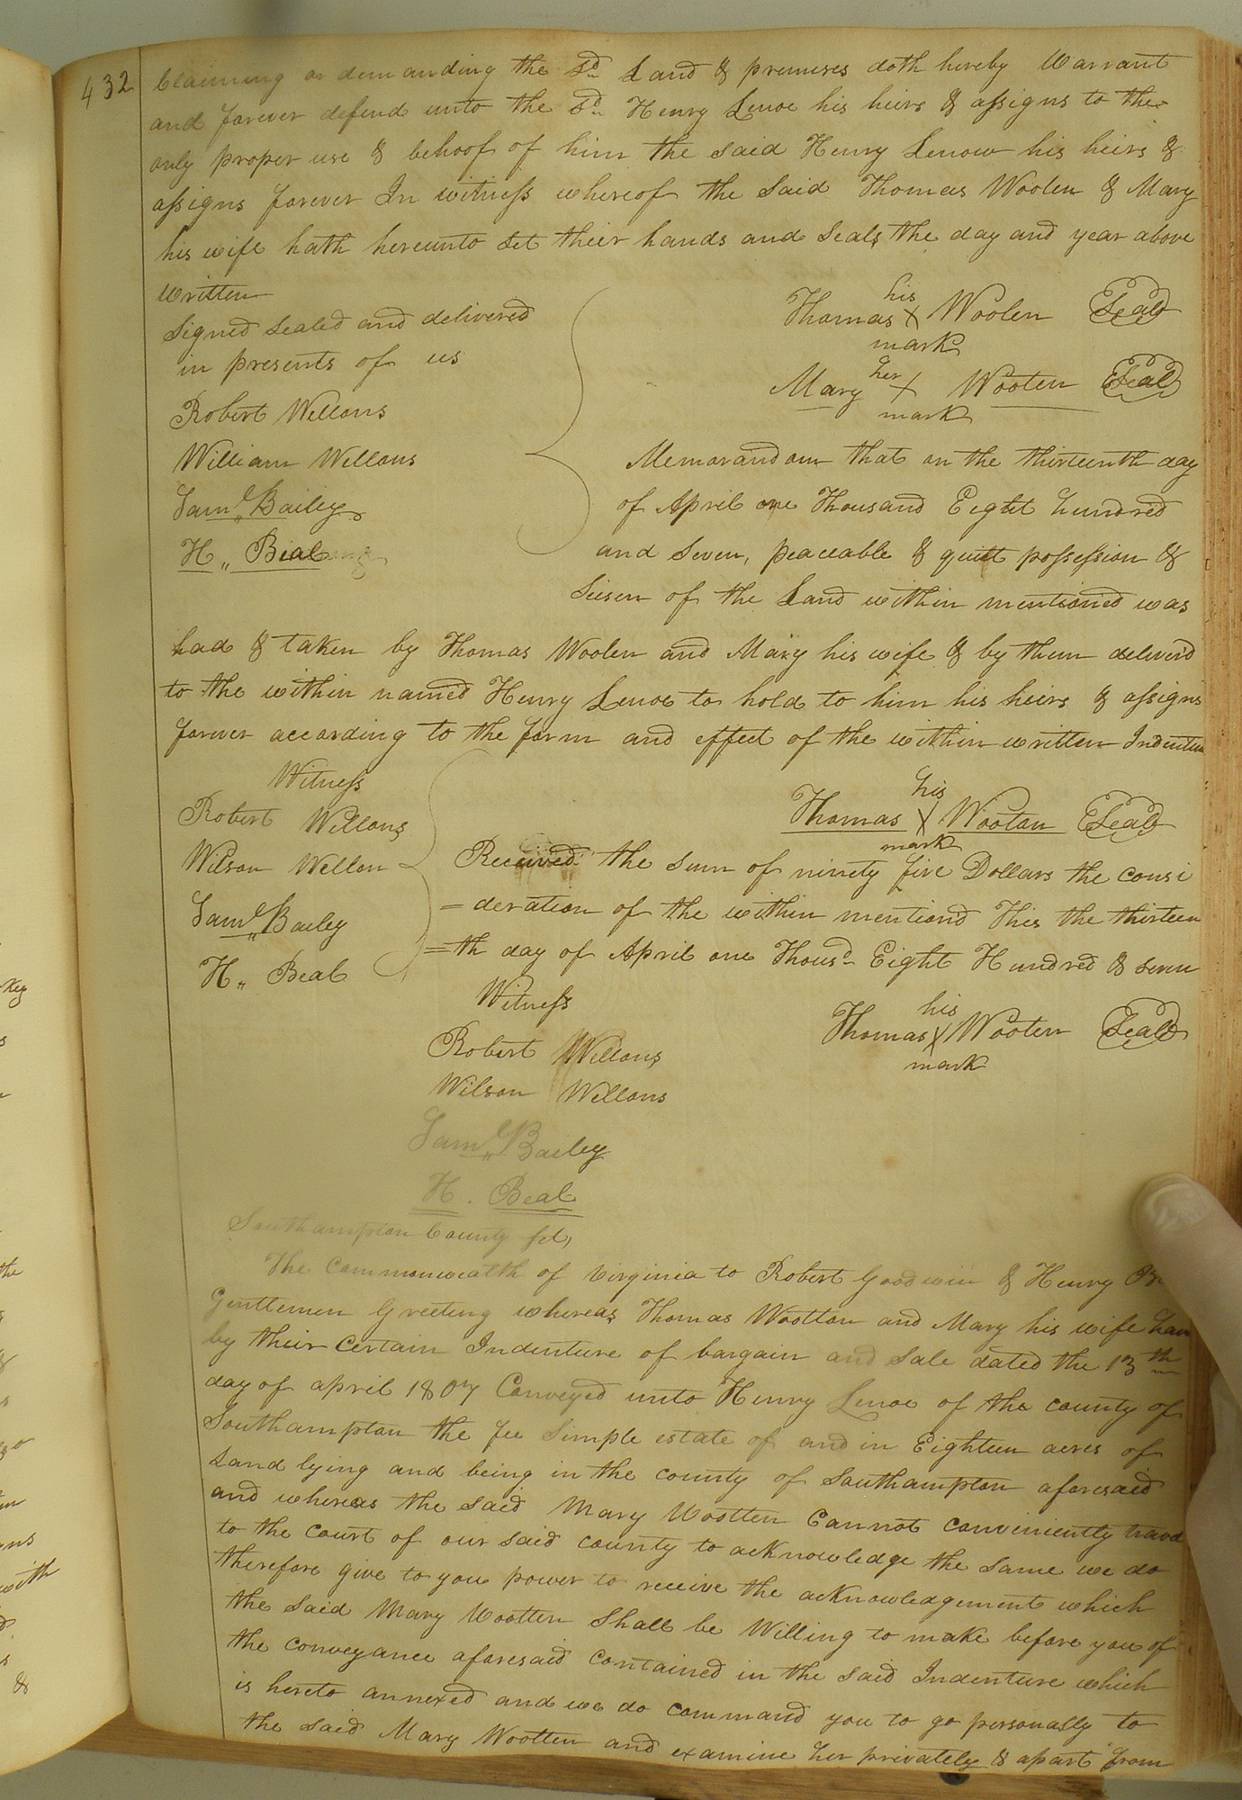 432
Claiming or demanding the sd. Land & premises doth hereby Warrant
and forever defend unto the sd. Henry Lenoe his heirs & assigns to the
only proper use & behoof of him the said Henry Lenow his heirs &
assigns forever In witness whereof the Said Thomas Woolen & Mary
his wife hath hereunto set their hands and Seals the day and year above
Written
Signed Sealed and delivered
in presents of us
Robert Wellons
William Wellons
Saml. Bailey
H. Beal
his
Thomas X Woolen Seal
mark
her
Mary X Wooten Seal
mark
Memorandom that on the thirteenth day
of April one Thousand Eight hundred
and Seven, peaceable & quiett possession &
Seisen of the Land within mentioned was
had & taken by Thomas Woolen and Mary his wife & by them deliverd
to the within named Henry Lenoe to hold to him his heirs & assigns
forever according to the form and effect of the within written Indenture
Witness
Robert Wellons
Wilson Wellon
Saml. Bailey
H. Beal
his
Thomas X Wootan Seal
mark
Received the sum of ninety five Dollars the consi
=deration of the within mentiond This the thirteen
=th day of April one Thousd. Eight Hundred & seven
Witness
Robert Wellons
Wilson Wellons
Saml. Bailey
H. Beal
his
Thomas X Wooten Seal
mark
Southampton County Sct,
The Commonwealth of Virginia to Robert Goodwin & Henry
Gentlemen Greeting whereas Thomas Wootton and Mary his wife have
by their Certain Indenture of bargain and Sale dated the 13th
day of april 1807 Conveyed unto Henry Lenoe of the county of
Southampton the fee Simple estate of and in Eighteen acres of
Land lying and being in the county of Southampton aforesaid
and whereas the said Mary Wootten Cannot conveniently travel
to the court of our said county to acknowledge the Same we do
therefore give to you power to receive the acknowledgement which
the said Mary Wootten Shall be Willing to make before you of
the conveyance aforesaid contained in the said Indenture which
is hereto annexed and we do command you to go personally to
the said Mary Wootten and examine her privately & apart from